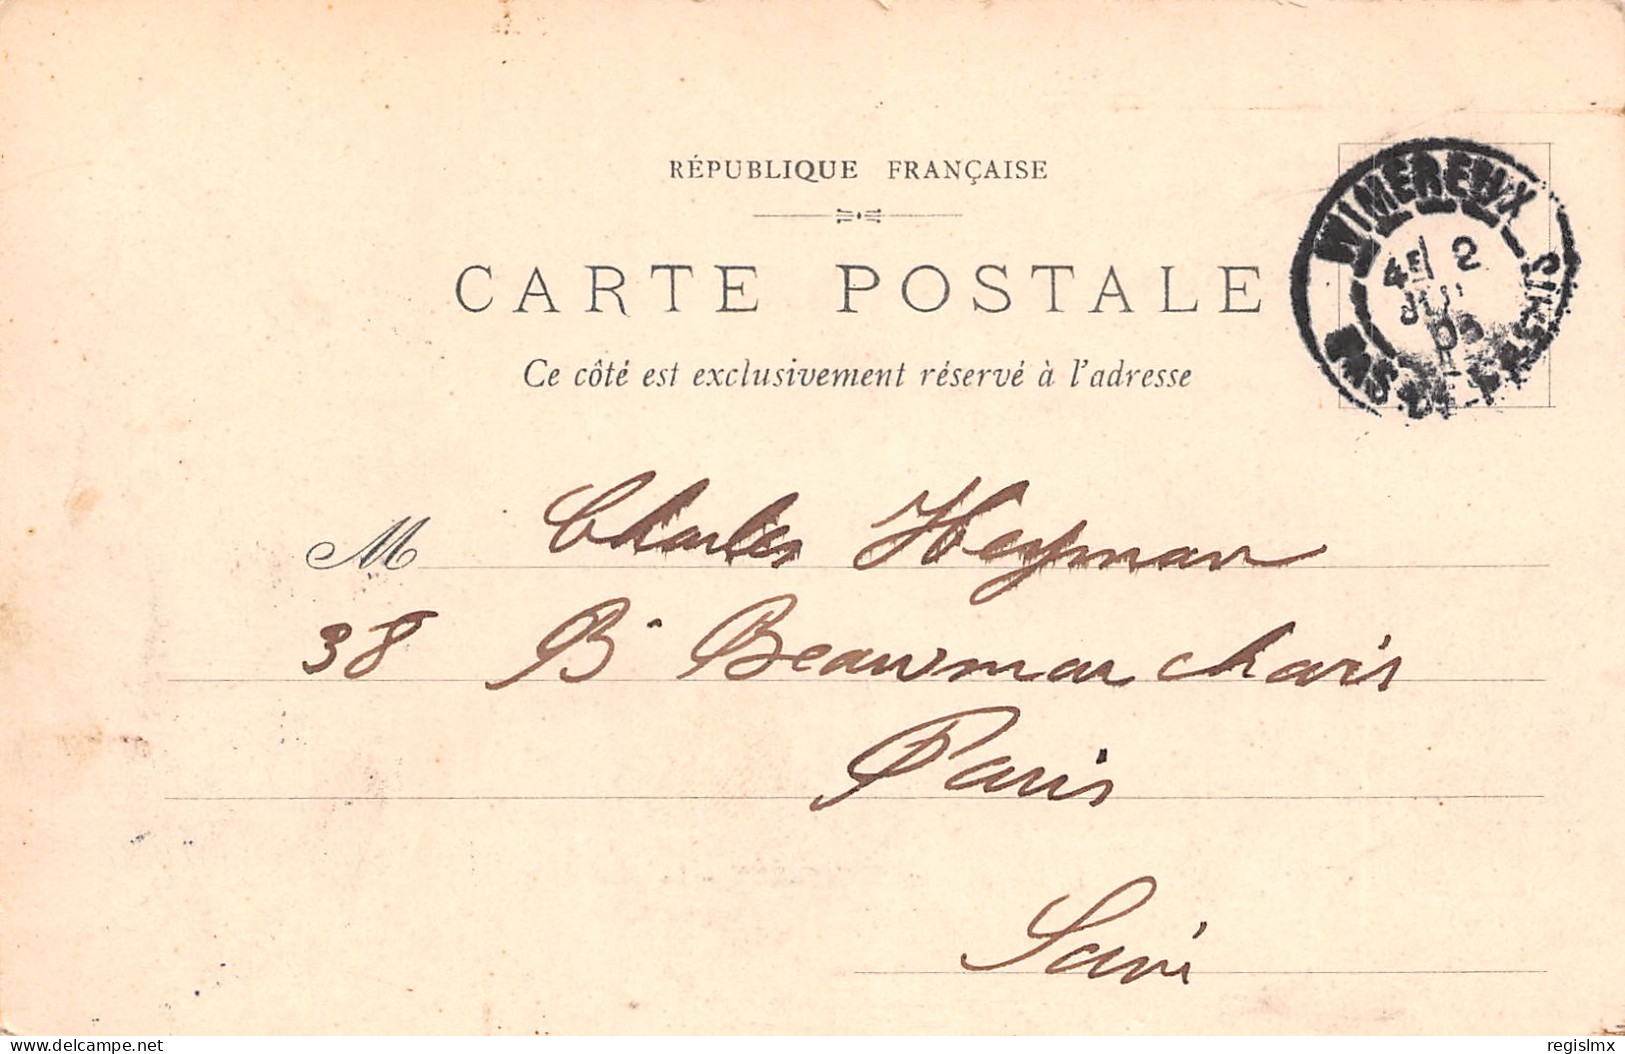 RÉPUBLIQUE FRANÇAISE
CARTE POSTALE
Ce côté est exclusivement réservé à l'adresse
WIMEREUX
4E 2
PAS-DE-CALAIS
M Charles Heyman
38 Bd Beaumarchais
Paris
www.delcampe.net
regislmx